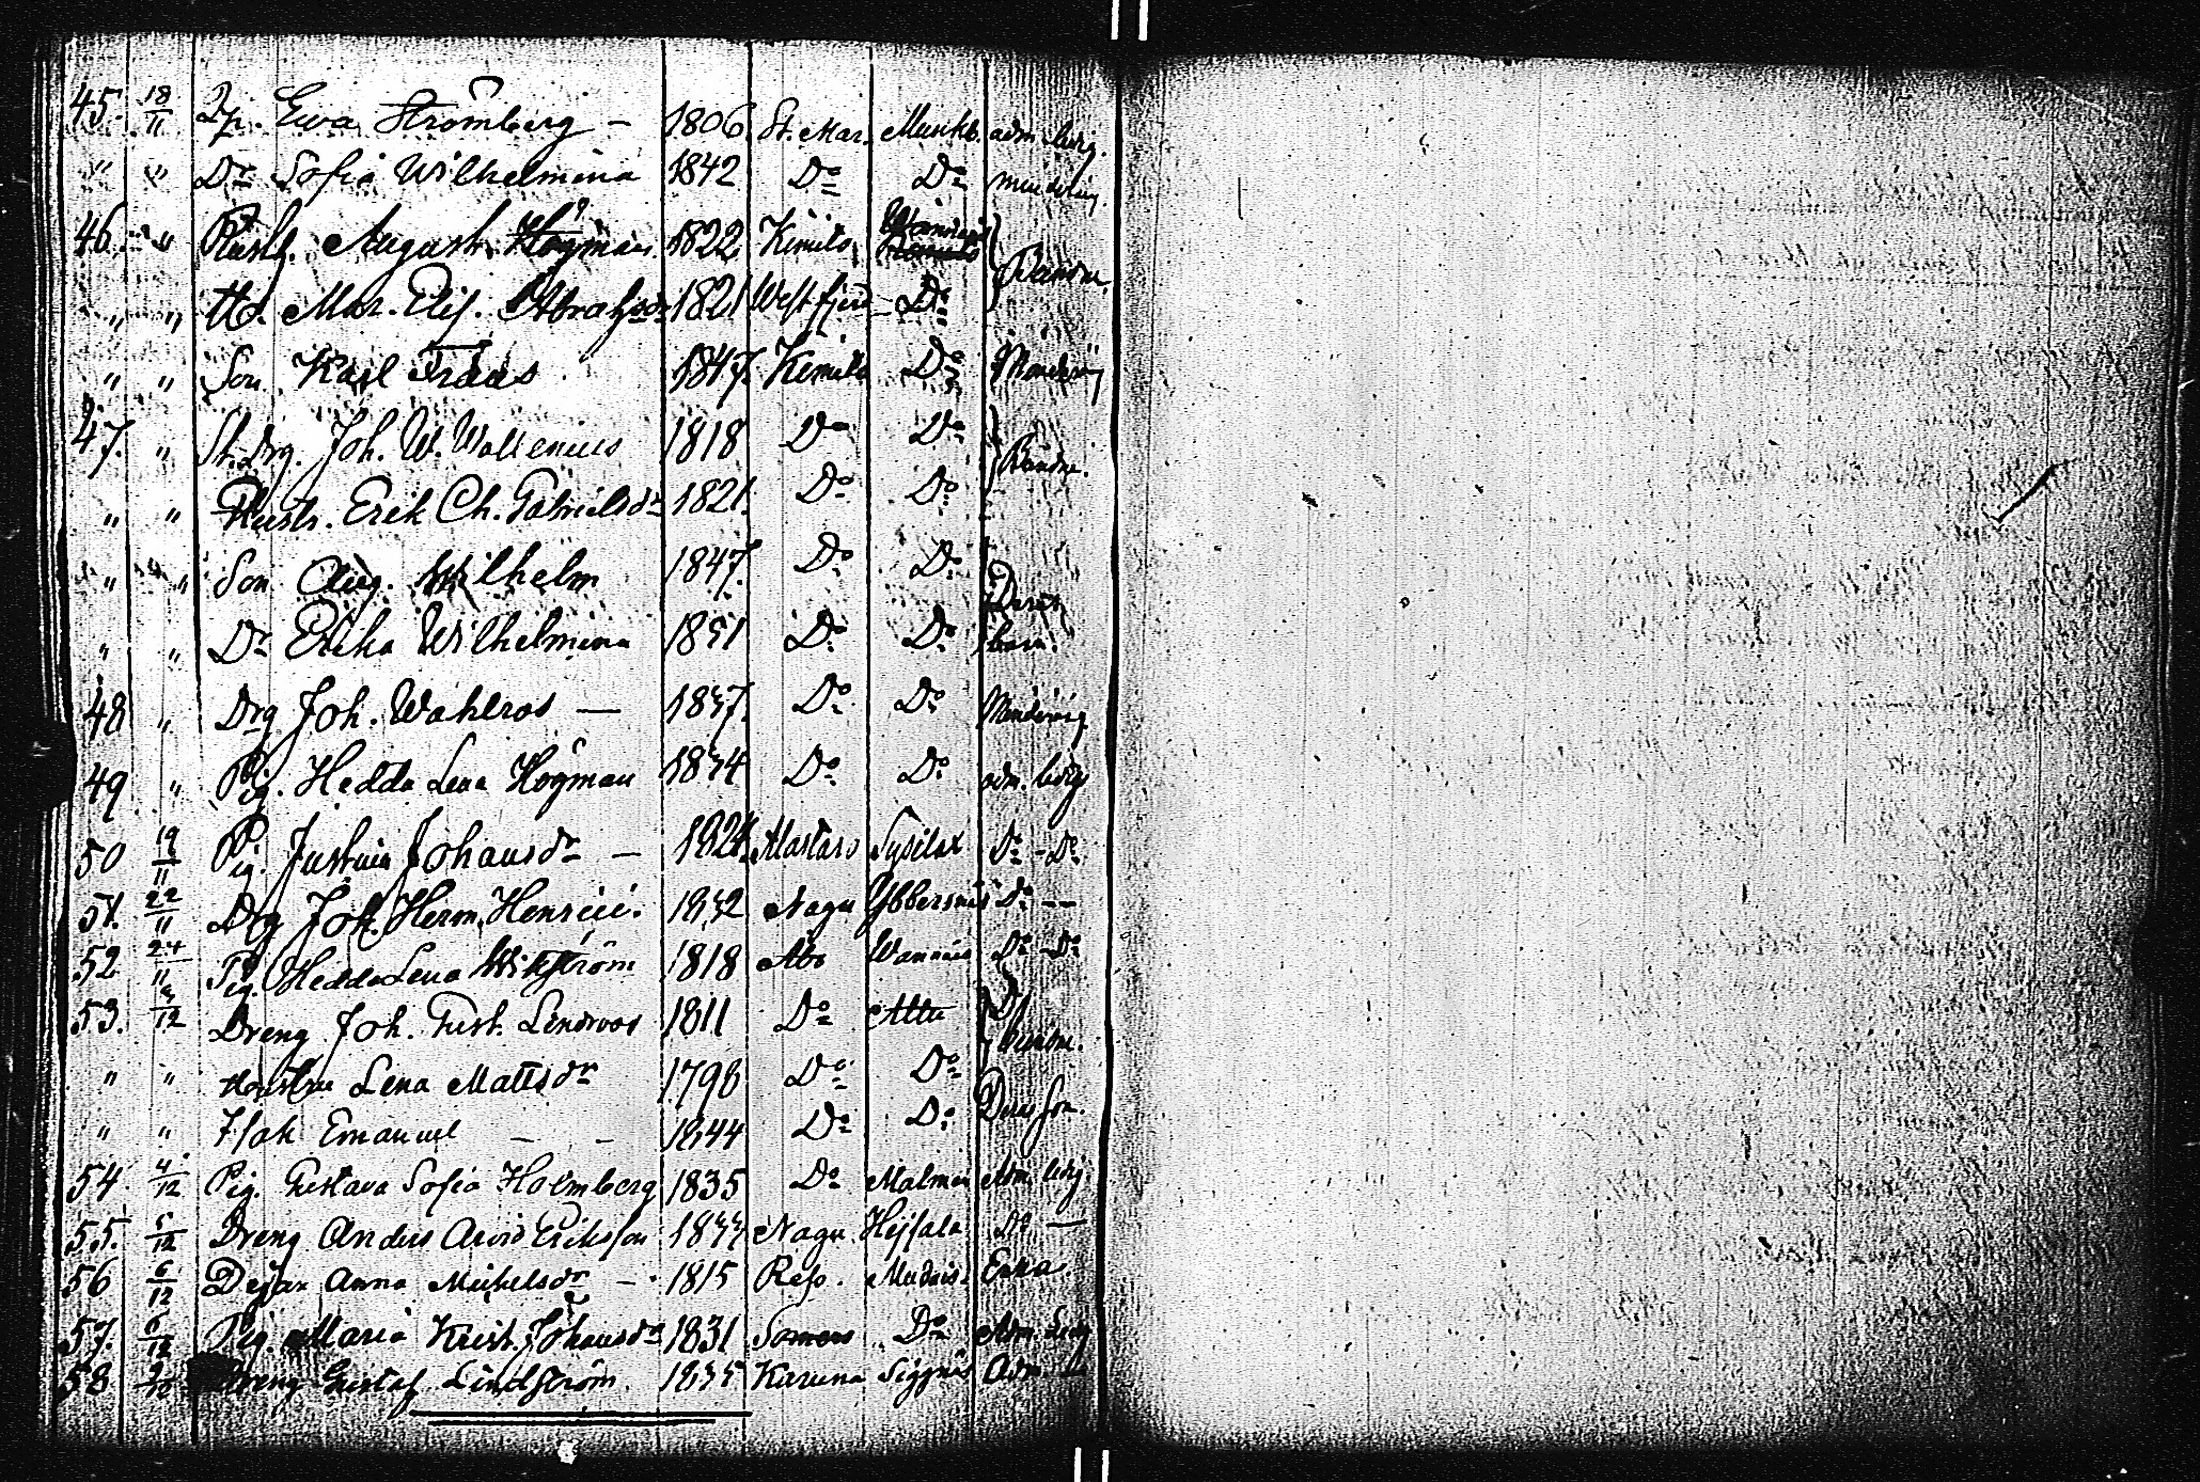 45. 18/11 Ewa Strömberg — 1806. St. Mar. Muskb. adm. ledig.
" " Dr Sofia Wilhelmina 1842 Do Do minderårig
46. " August Högman 1822 Kimito Bändre.
" " H. Mar. Elis. Abrahsdr 1821 Westfjerd Do
" " Son Karl Fräas 1847. Kimito Do Minderårig
47. " St. Drg. Joh. W. Wallenius 1818 Do Do Bändre.
" " Hustr. Erik Ch. Gabrielsdr 1821. Do Do
" " Son Aug. Wilhelm 1847. Do Do Deras
" " Dr Erika Wilhelmina 1851 Do Do barn.
48 " Drg Joh. Wahlros — 1837. Do Do Minderårig
49 " Pig. Hedda Lena Högman 1834 Do Do adm. ledig
50 19/11 Pig. Justina Johansdr — 1824 Alastaro Sysilax Do - Do
51. 22/11 Drg Joh. Herm. Henrici. 1832 Nagu Ybbersnäs Do —
52 24/11 Pig. Hedda Lena Wikström 1818 Åbo Wannäis Do - Do
53. 3/12 Dreng Joh. Gust. Lindroos 1811 Do Attu
" " Hustru Lena Mattsdr 1798 Do Do
" " Isak Emanuel — — 1844 Do Do Deras son.
54. 4/12 Pig. Gustava Sofia Holmberg 1835 Do Malmnäs Adm. ledig
55. 5/12 Dreng Anders Arvid Eriksson 1833 Nagu. Hejsala Do —
56 6/12 Dejan Anna Michelsdr — 1815 Reso. Mudais. Enka.
57. 6/12 Pig. Maria Krist. Johansdr 1831 Somero Do Adm. Ledig
58 9/12 Dreng Gustaf Lindström. 1835 Karuna Siggnäs Adm —